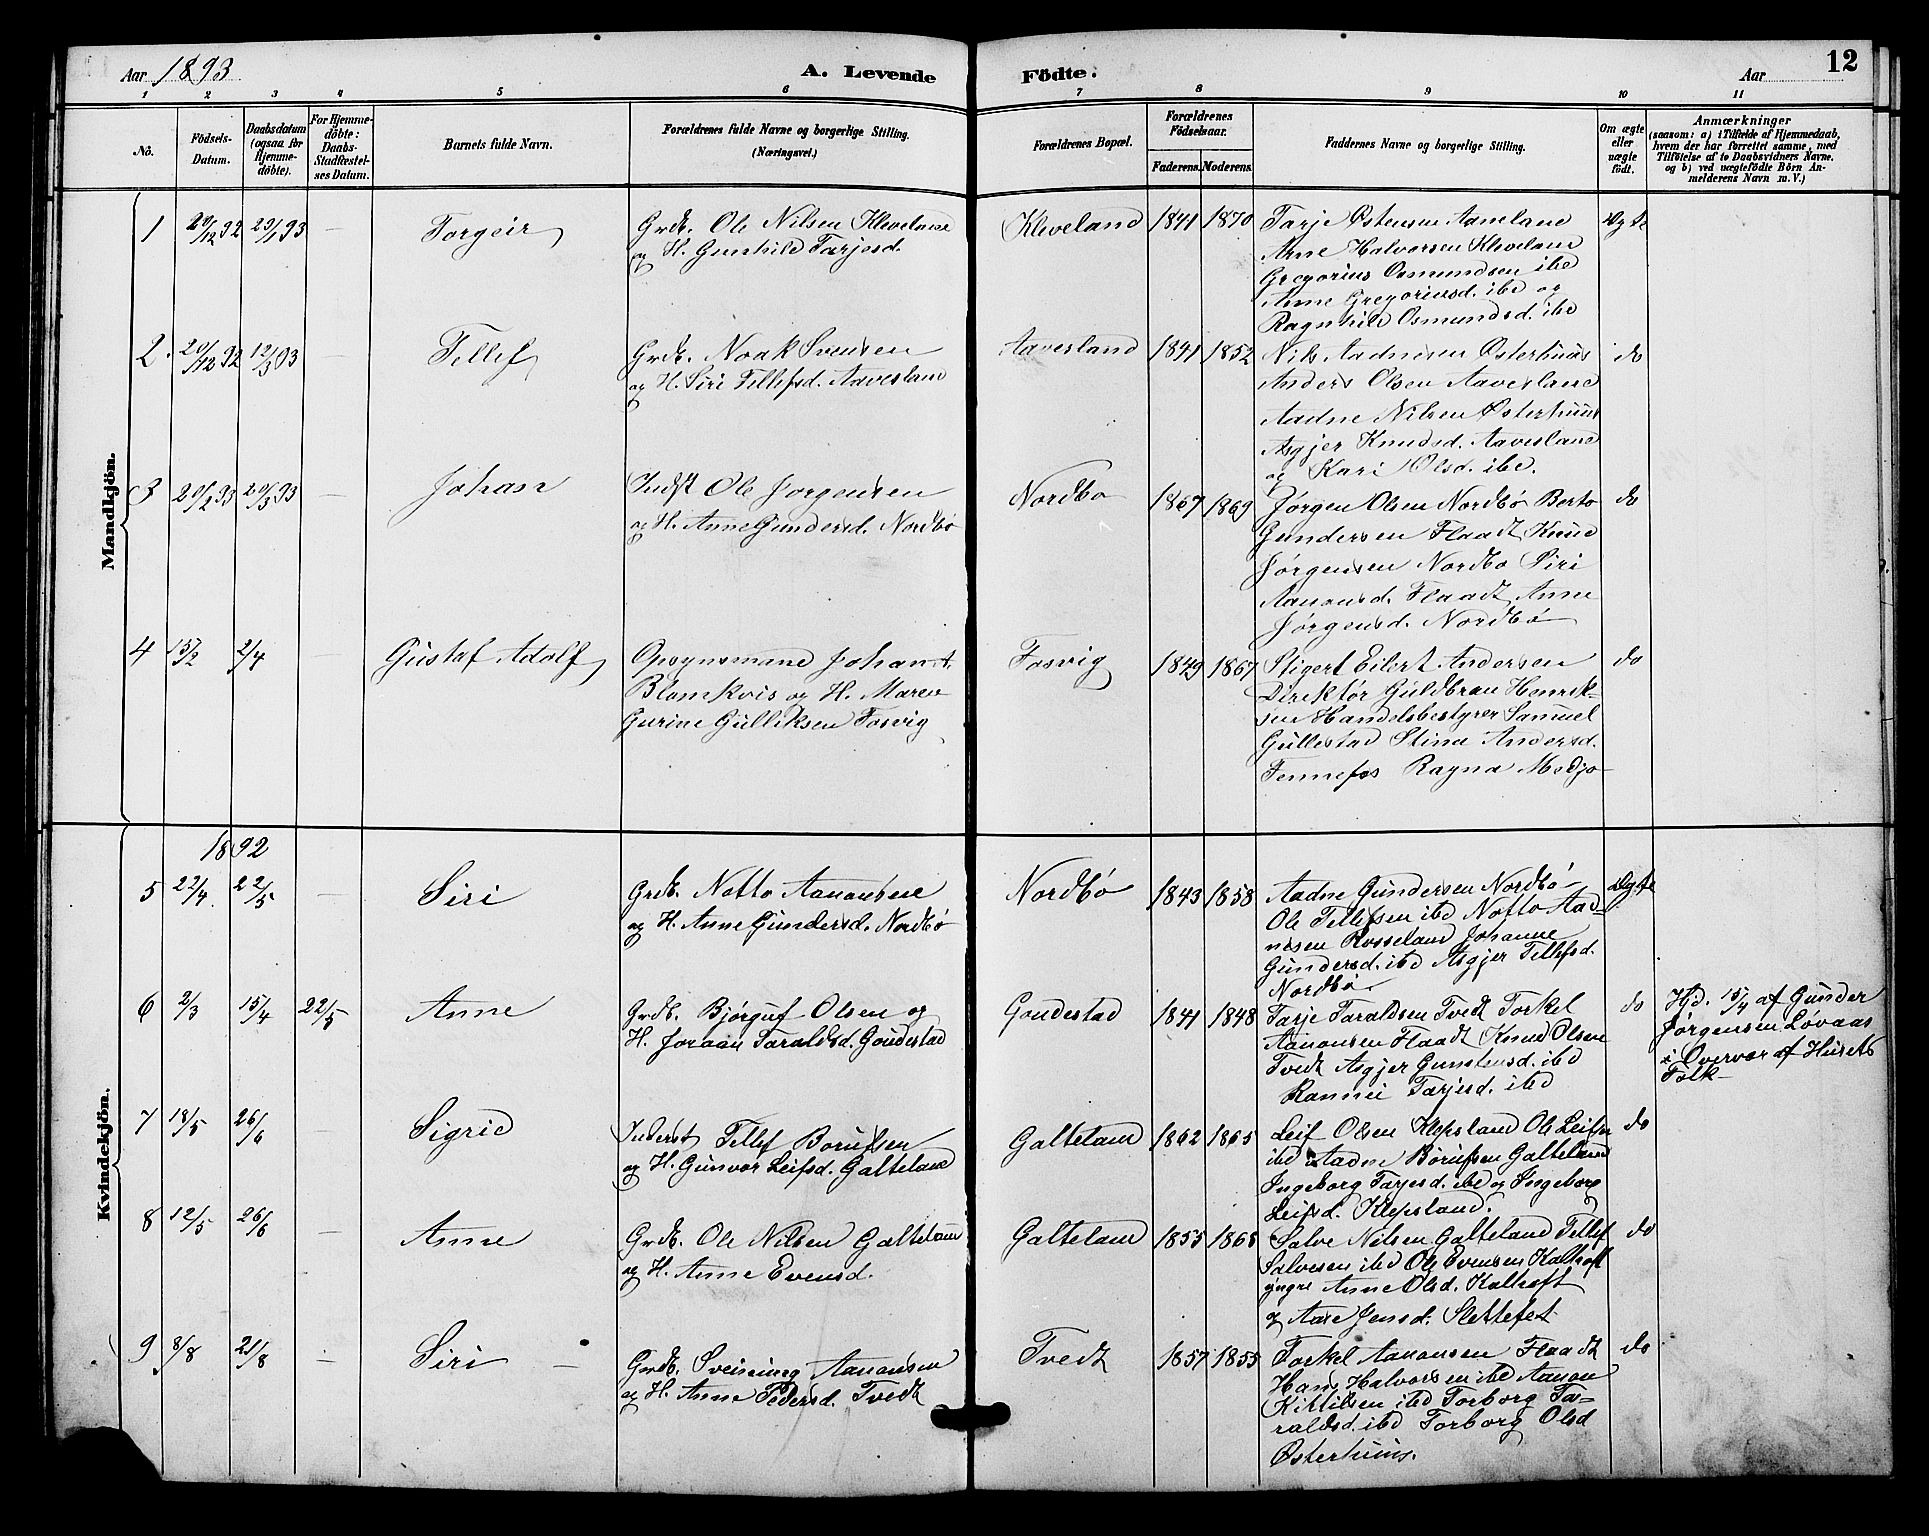 Aar 1893
A. Levende
Födte.
Aar
12
1 2 3 4 5 6 7 8 9 10 11
No.
Födsels-
Datum.
Daabsdatum
(ogsaa for
Hjemme-
döbte).
For Hjemme-
döbte:
Daabs-
Stadfæstel-
ses Datum.
Barnets fulde Navn.
Forældrenes fulde Navne og borgerlige Stilling.
(Næringsvei.)
Forældrenes Bopæl.
Forældrenes
Födselsaar.
Faderens.
Moderens.
Faddernes Navne og borgerlige Stilling.
Om ægte
eller
uægte
födt.
Anmærkninger
(saasom: a) i Tilfælde af Hjemmedaab,
hvem der har forrettet samme, med
Tilföielse af to Daabsvidners Navne.
og b) ved uægtefödte Börn An-
melderens Navn m. V.)
Mandkjön.
1 29/12 92 29/1 93 – Torgeir
Grdb. Ole Nilsen Kleveland
og H. Gunhild Tarjesd.
Kleveland 1841 1870
Tarje Østensen Aaneland
Arne Halvorsen Kleveland
Gregorius Osmundsen ibd
Anne Gregoriusd. ibd og
Ragnhild Osmundsd. ibd
Ægte
2. 20/12 92 12/3 93 Tellef
Grdb. Noak Svensen
og H. Siri Tellefsd. Aavesland
Aavesland 1841 1852
Nils Aadnesen Østerhuus
Anders Olsen Aavesland
Aadne Nilsen Østerhuus
Asgjer Knudsd. Aavesland
og Kari Olsd. ibd.
do
3 20/2 93 20/3 93 – Johan
Indst Ole Jørgensen
og H. Anne Gundersd. Nordbø
Nordbø 1867 1869
Jørgen Olsen Nordbø Berto
Gundersen Flaadt Knud
Jørgensen Nordbø Siri
Aanonsd. Flaadt Anne
Jørgensd. Nordbø
do
4 15/2 2/4 – Gustaf Adolf
Opsynsmand Johan A.
Blomkvis og H. Maren
Gurine Gulliksen Fosvig
Fosvig 1849 1867
Sigert Eilert Andersen
Direktør Guldbran Henrik-
sen Handelsbestyrer Samuel
Gullestad Stina Andersd.
Fennefos Ragna Medjo-
do
Kvindekjön.
1892
5 22/4 22/5 – Siri
Grdb. Notto Aanonsen
og H. Anne Gundersd. Nordbø
Nordbø 1843 1858
Aadne Gundersen Nordbø
Ole Tellefsen ibd Notto Aad-
nesen Rosseland Johanne
Gundersd. ibd Asgjer Tellefsd.
Nordbø
Ægte
6 2/3 15/4 22/5 Anne
Grdb. Bjørguf Olsen og
H. Joraan Taraldsd. Goudestad
Goudestad 1841 1848
Tarje Taraldsen Tvedt Torkel
Aanonsen Flaadt Knud Olsen
Tvedt Asgjer Gunstensd. ibd
Rannei Tarjesd. ibd
do
Hjd. 15/4 af Gunder
Jørgensen Løvaas
i Overvær af Husets
Folk
7 18/5 26/6 Sigrid
Inderst Tellef Borufsen
og H. Gunvor Leifsd. Galteland
Galteland 1862 1865
Leif Olsen Klepsland Ole Leifsn
ibd Aadne Borufsen Galteland
Ingeborg Tarjesd. ibd og Ingeborg
Leifsd. Klepsland.
do
8 12/5 26/6 – Anne
Grdb. Ole Nilsen Galteland
og H. Anne Evensd.
Galteland 1855 1868
Salve Nilsen Galteland Tellef
Salvesen ibd Ole Evensen Kaltoft
yngre Anne Olsd. Kaltoft
og Aase Jensd. Slettefet
do
9 8/8 21/8 – Siri –
Grdb. Sveinung Aanonsen
og H. Anne Pedersd. Tvedt
Tvedt 1857 1855
Torkel Aanonsen Flaadt
Hans Halvorsen ibd Aanon
Kittilsen ibd Torborg Ta-
raldsd. ibd Torborg Olsd
Østerhuus.
do